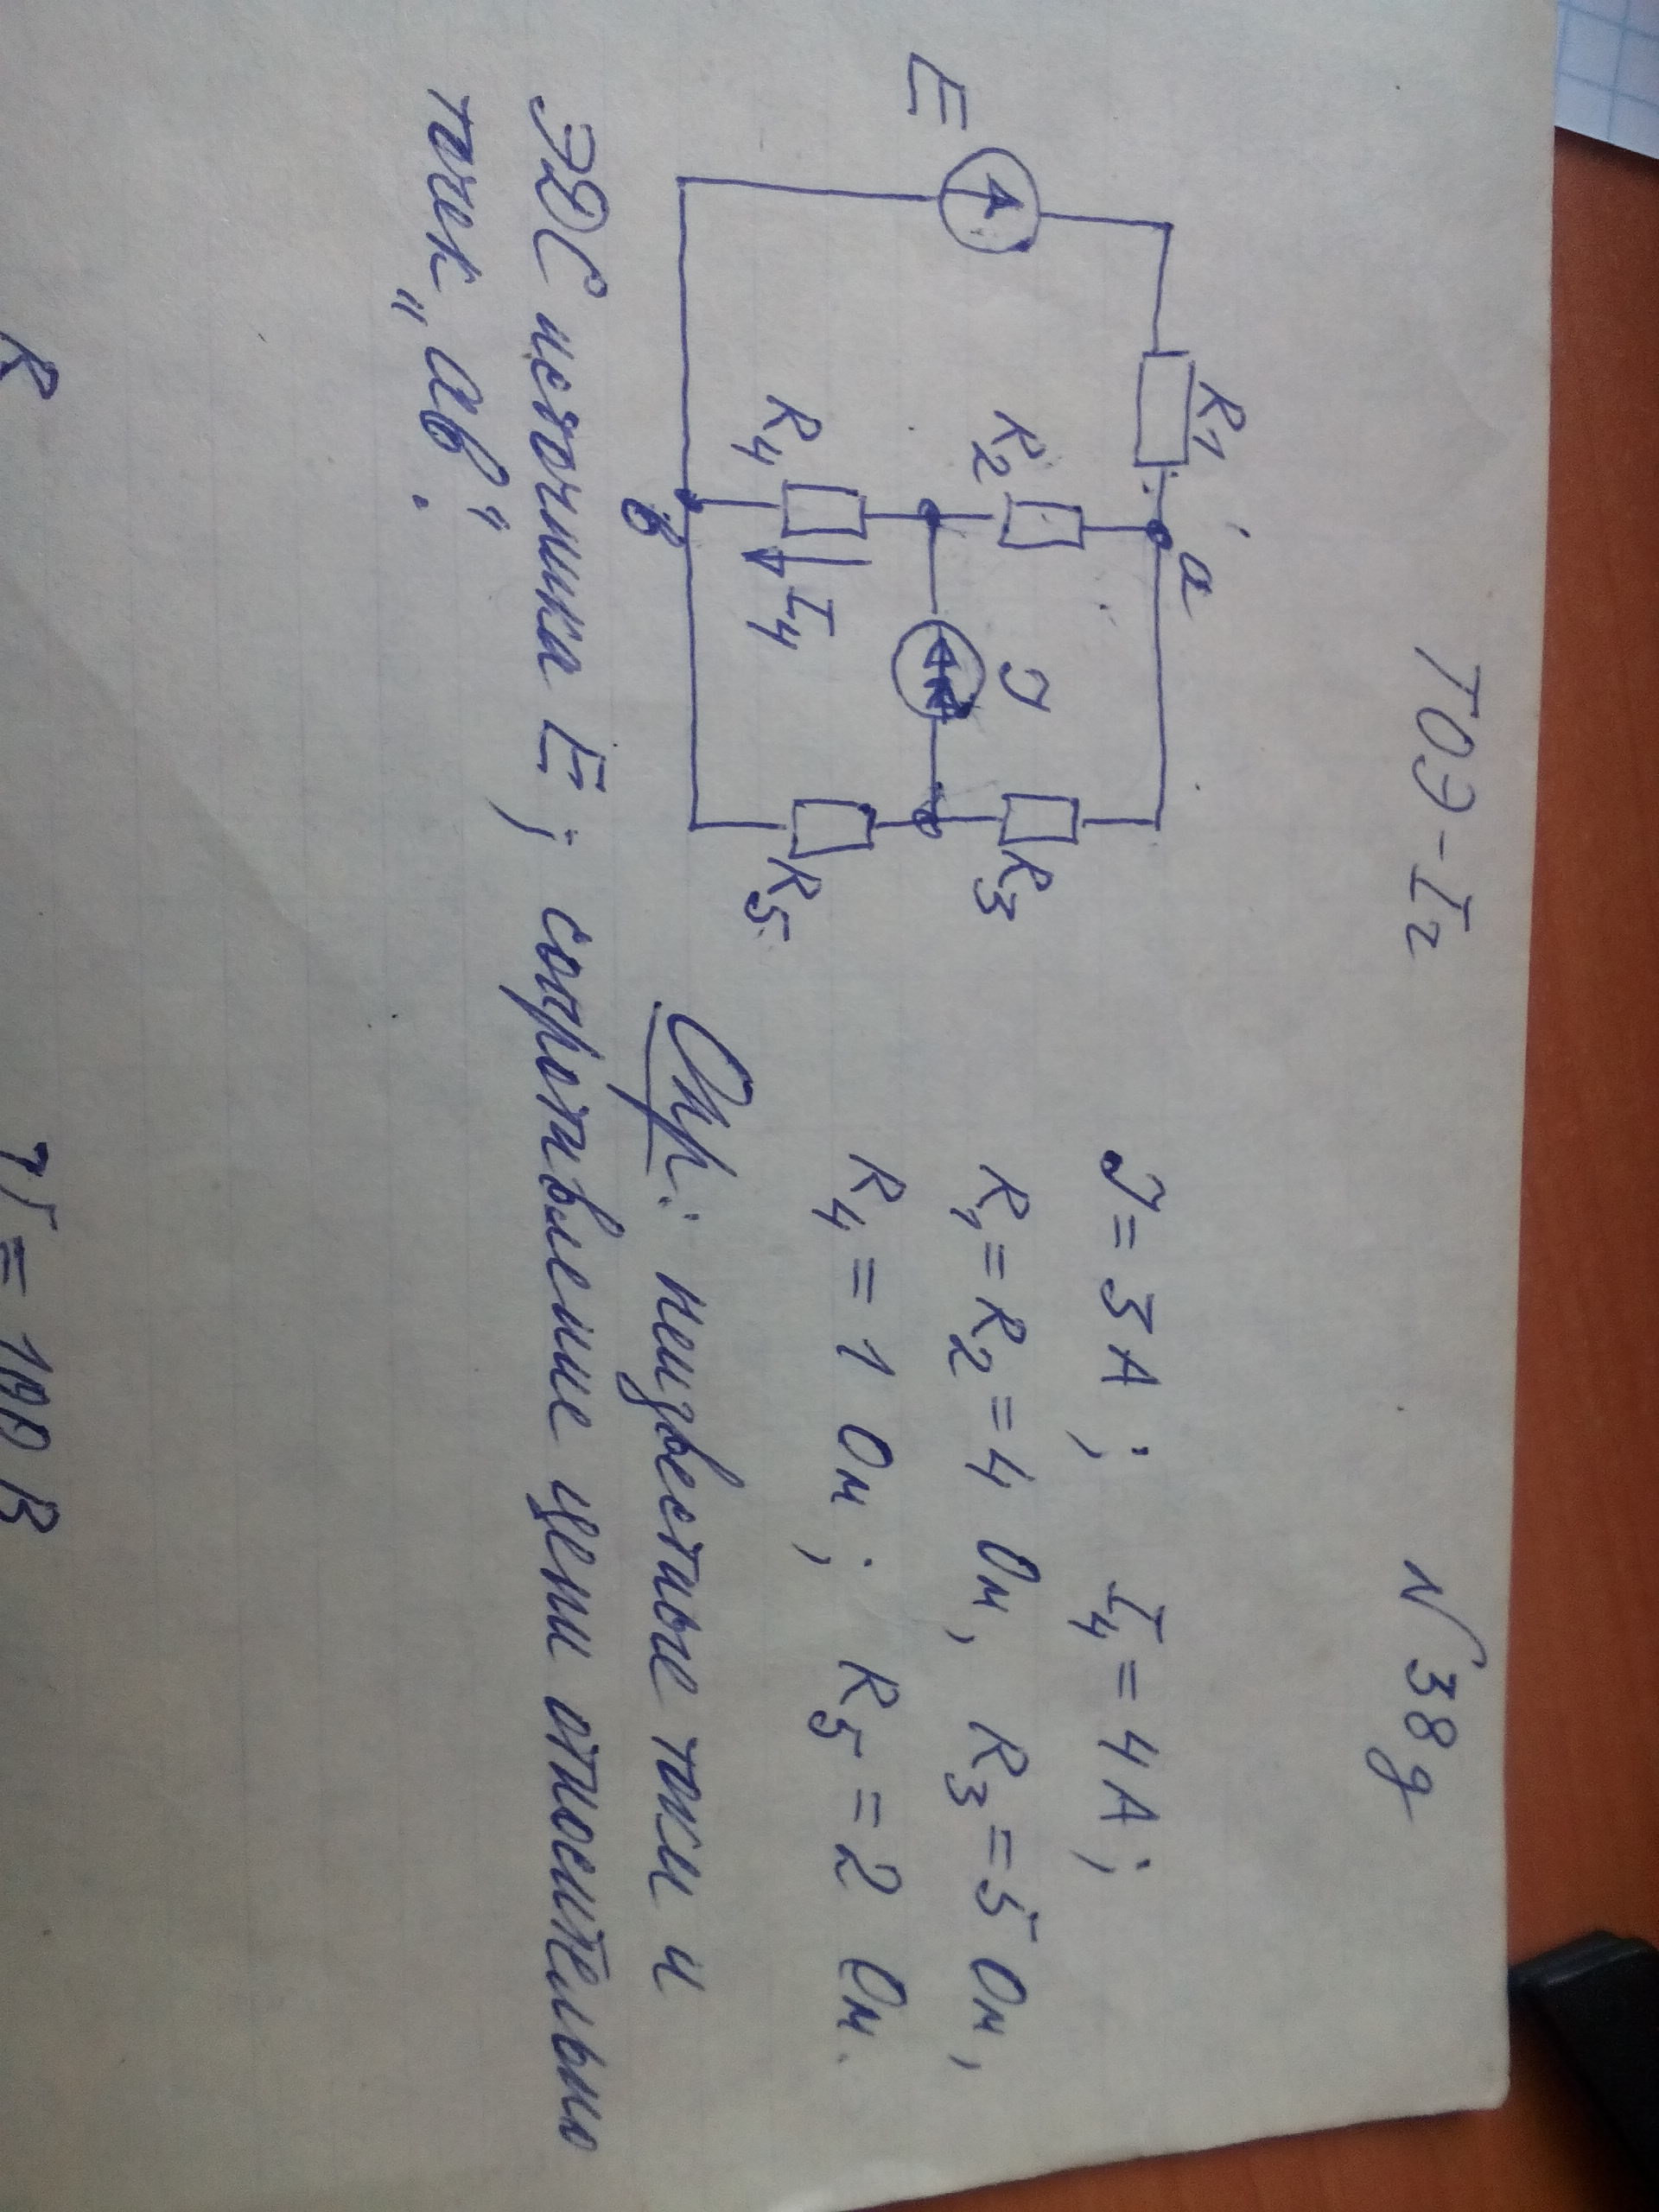 ТОЭ-I₂ N 38g
E
R₁
a
R₂
R₃
J
R₄
I₄
R₅
в
J = 3 A ; I₄ = 4 A ;
R₁ = R₂ = 4 Ом, R₃ = 5 Ом,
R₄ = 1 Ом ; R₅ = 2 Ом.
Опр.: неизвестные токи и
ЭДС источника E ; сопротивление цепи относительно
точек „ав“.
R
= 100 В